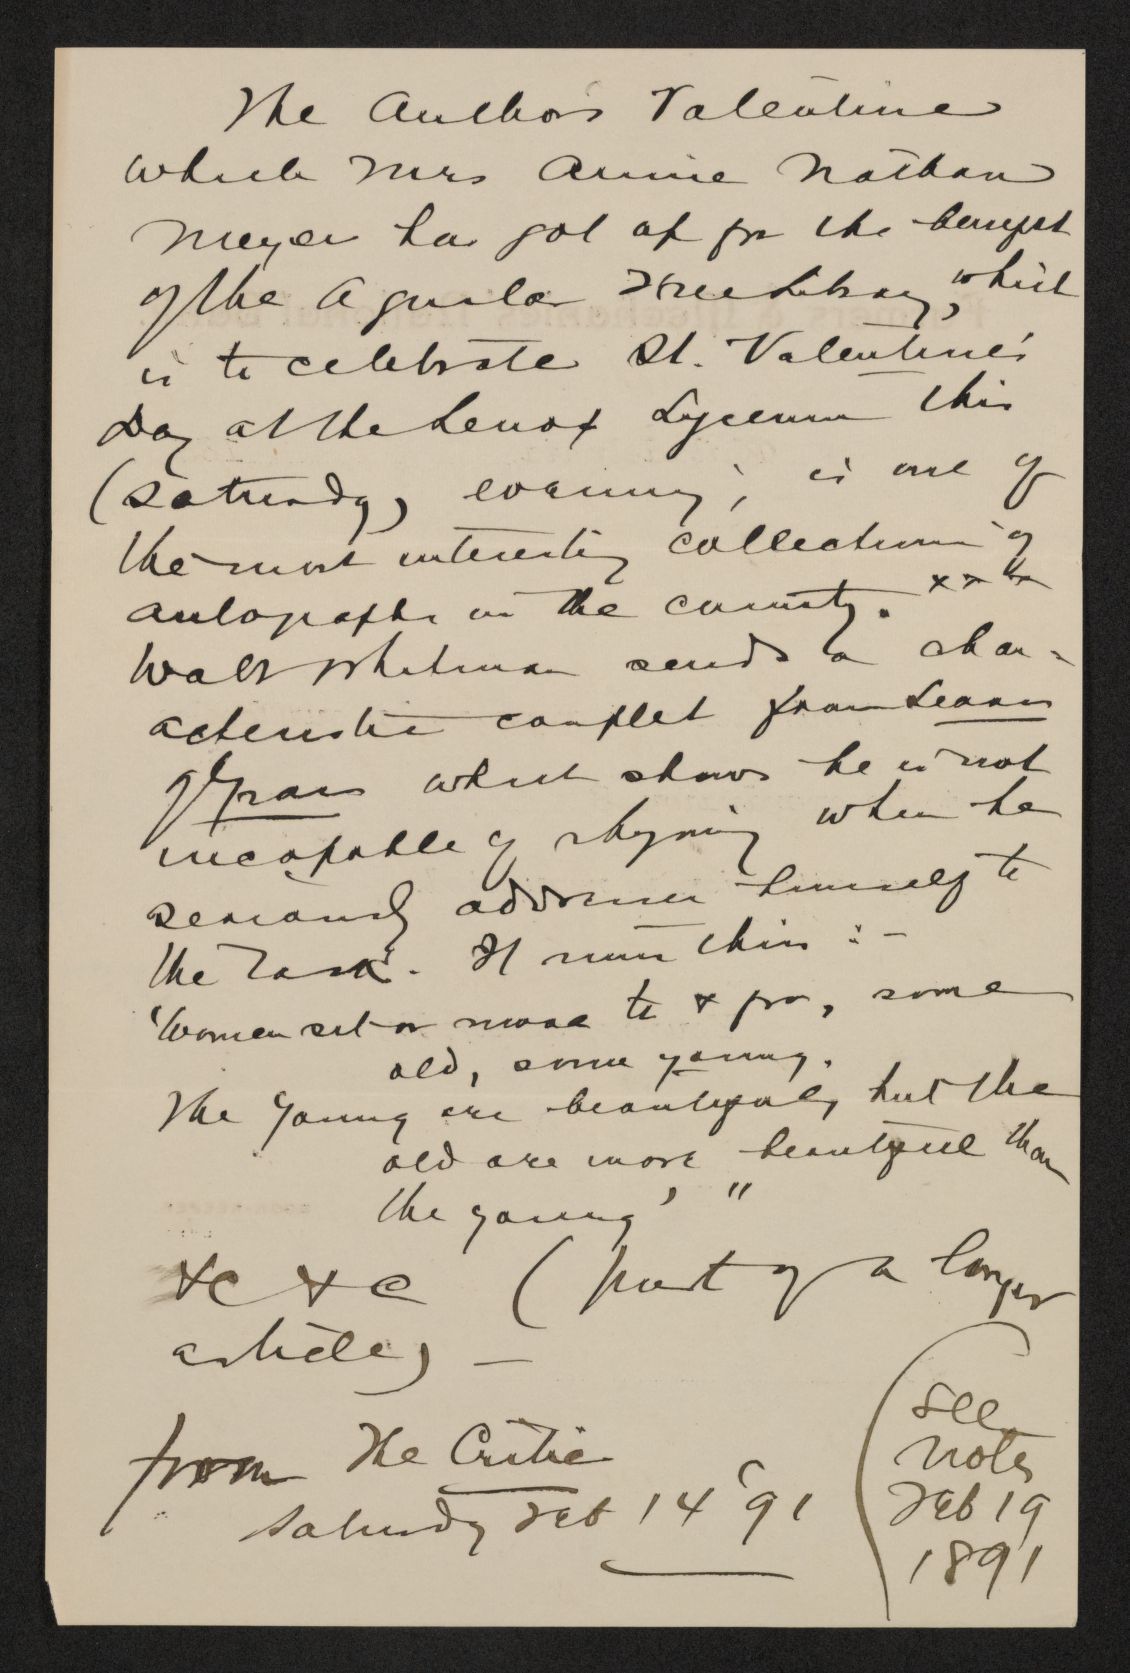 The Authors Valentine
which Mrs Annie Nathan
Meyer has got up for the benefit
of the Aguilar Free Library, which
is to celebrate St. Valentine's
Day at the Lenox Lyceum this
(Saturday) evening, is one of
the most interesting collections of
autographs in the country. x x x
Walt Whitman sends a char-
acteristic couplet from Leaves
of Grass which shows he is not
incapable of rhyming when he
seriously addresses himself to
the task. It runs thus :-
'Women sit or move to & fro, some
old, some young.
The young are beautiful, but the
old are more beautiful than
the young' "
&c &c (part of a longer
article) —
from The Critic
Saturday Feb 14 '91
(see
notes
Feb 19
1891